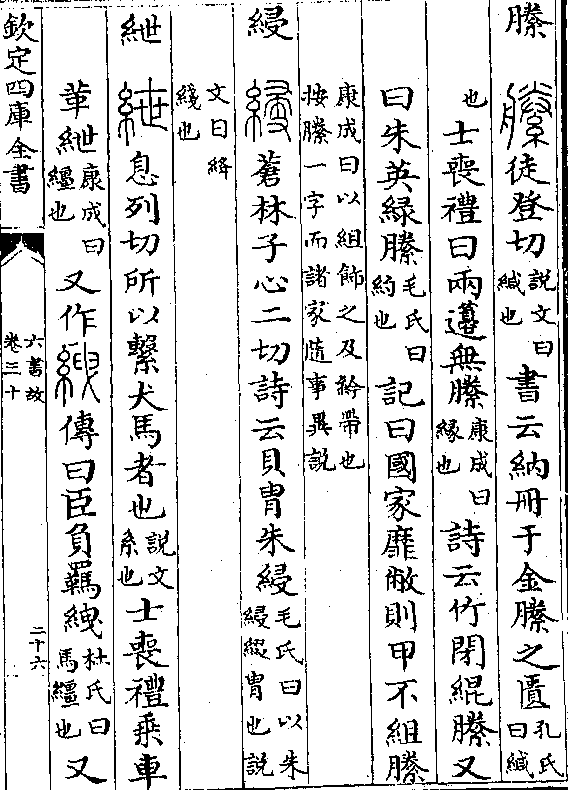 縢縢徒登切說文曰緘也書云納冊于金縢之匱孔氏曰緘
也士喪禮曰兩籩無縢康成曰緣也詩云竹閉緄縢又
曰朱英綠縢毛氏曰約也記曰國家靡敝則甲不組縢
康成曰以組飾之及紟帶也
按縢一字而諸家隨事異說
綅綅蒼林子心二切詩云貝胄朱綅毛氏曰以朱綅綴胄也說
文曰絳綫也
紲紲息列切所以繫犬馬者也說文系也士喪禮乗車
革紲康成曰繮也又作絏傳曰臣負羈絏杜氏曰馬繮也又
欽定四庫全書
六書故
卷三十
二十六